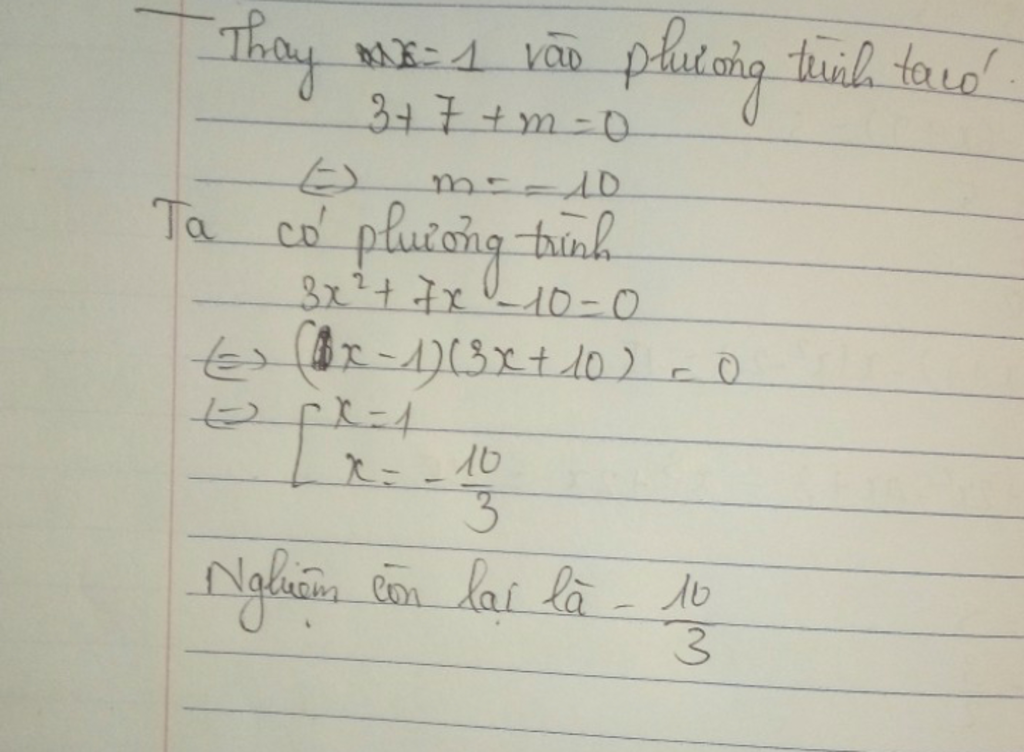 Thay x = 1 vào phương trình ta có
3 + 7 + m = 0
⇔ m = -10
Ta có phương trình
3x² + 7x - 10 = 0
⇔ (x - 1)(3x + 10) = 0
⇔ [ x = 1
x = - 10/3
Nghiệm còn lại là - 10/3